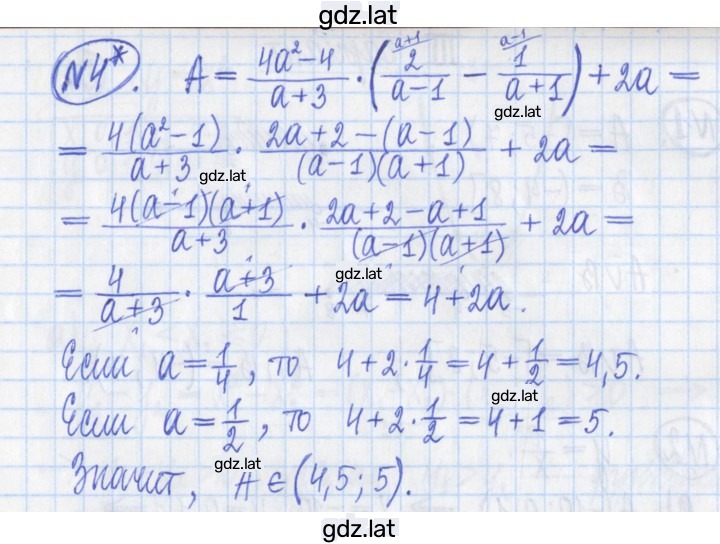 gdz.lat
№4*. A = \frac{4a²-4}{a+3} · (\frac{2}{a-1}^{a+1} - \frac{1}{a+1}^{a-1}) + 2a =
gdz.lat
= \frac{4(a²-1)}{a+3} · \frac{2a+2-(a-1)}{(a-1)(a+1)} + 2a =
gdz.lat gdz.lat
= \frac{4(a-1)(a+1)}{a+3} · \frac{2a+2-a+1}{(a-1)(a+1)} + 2a =
gdz.lat
= \frac{4}{a+3} · \frac{a+3}{1} + 2a = 4+2a.
Если a = \frac{1}{4}, то 4+2·\frac{1}{4} = 4+\frac{1}{2} = 4,5.
gdz.lat
Если a = \frac{1}{2}, то 4+2·\frac{1}{2} = 4+1 = 5.
gdz.lat
Значит, A ∈ (4,5; 5).
gdz.lat
gdz.lat